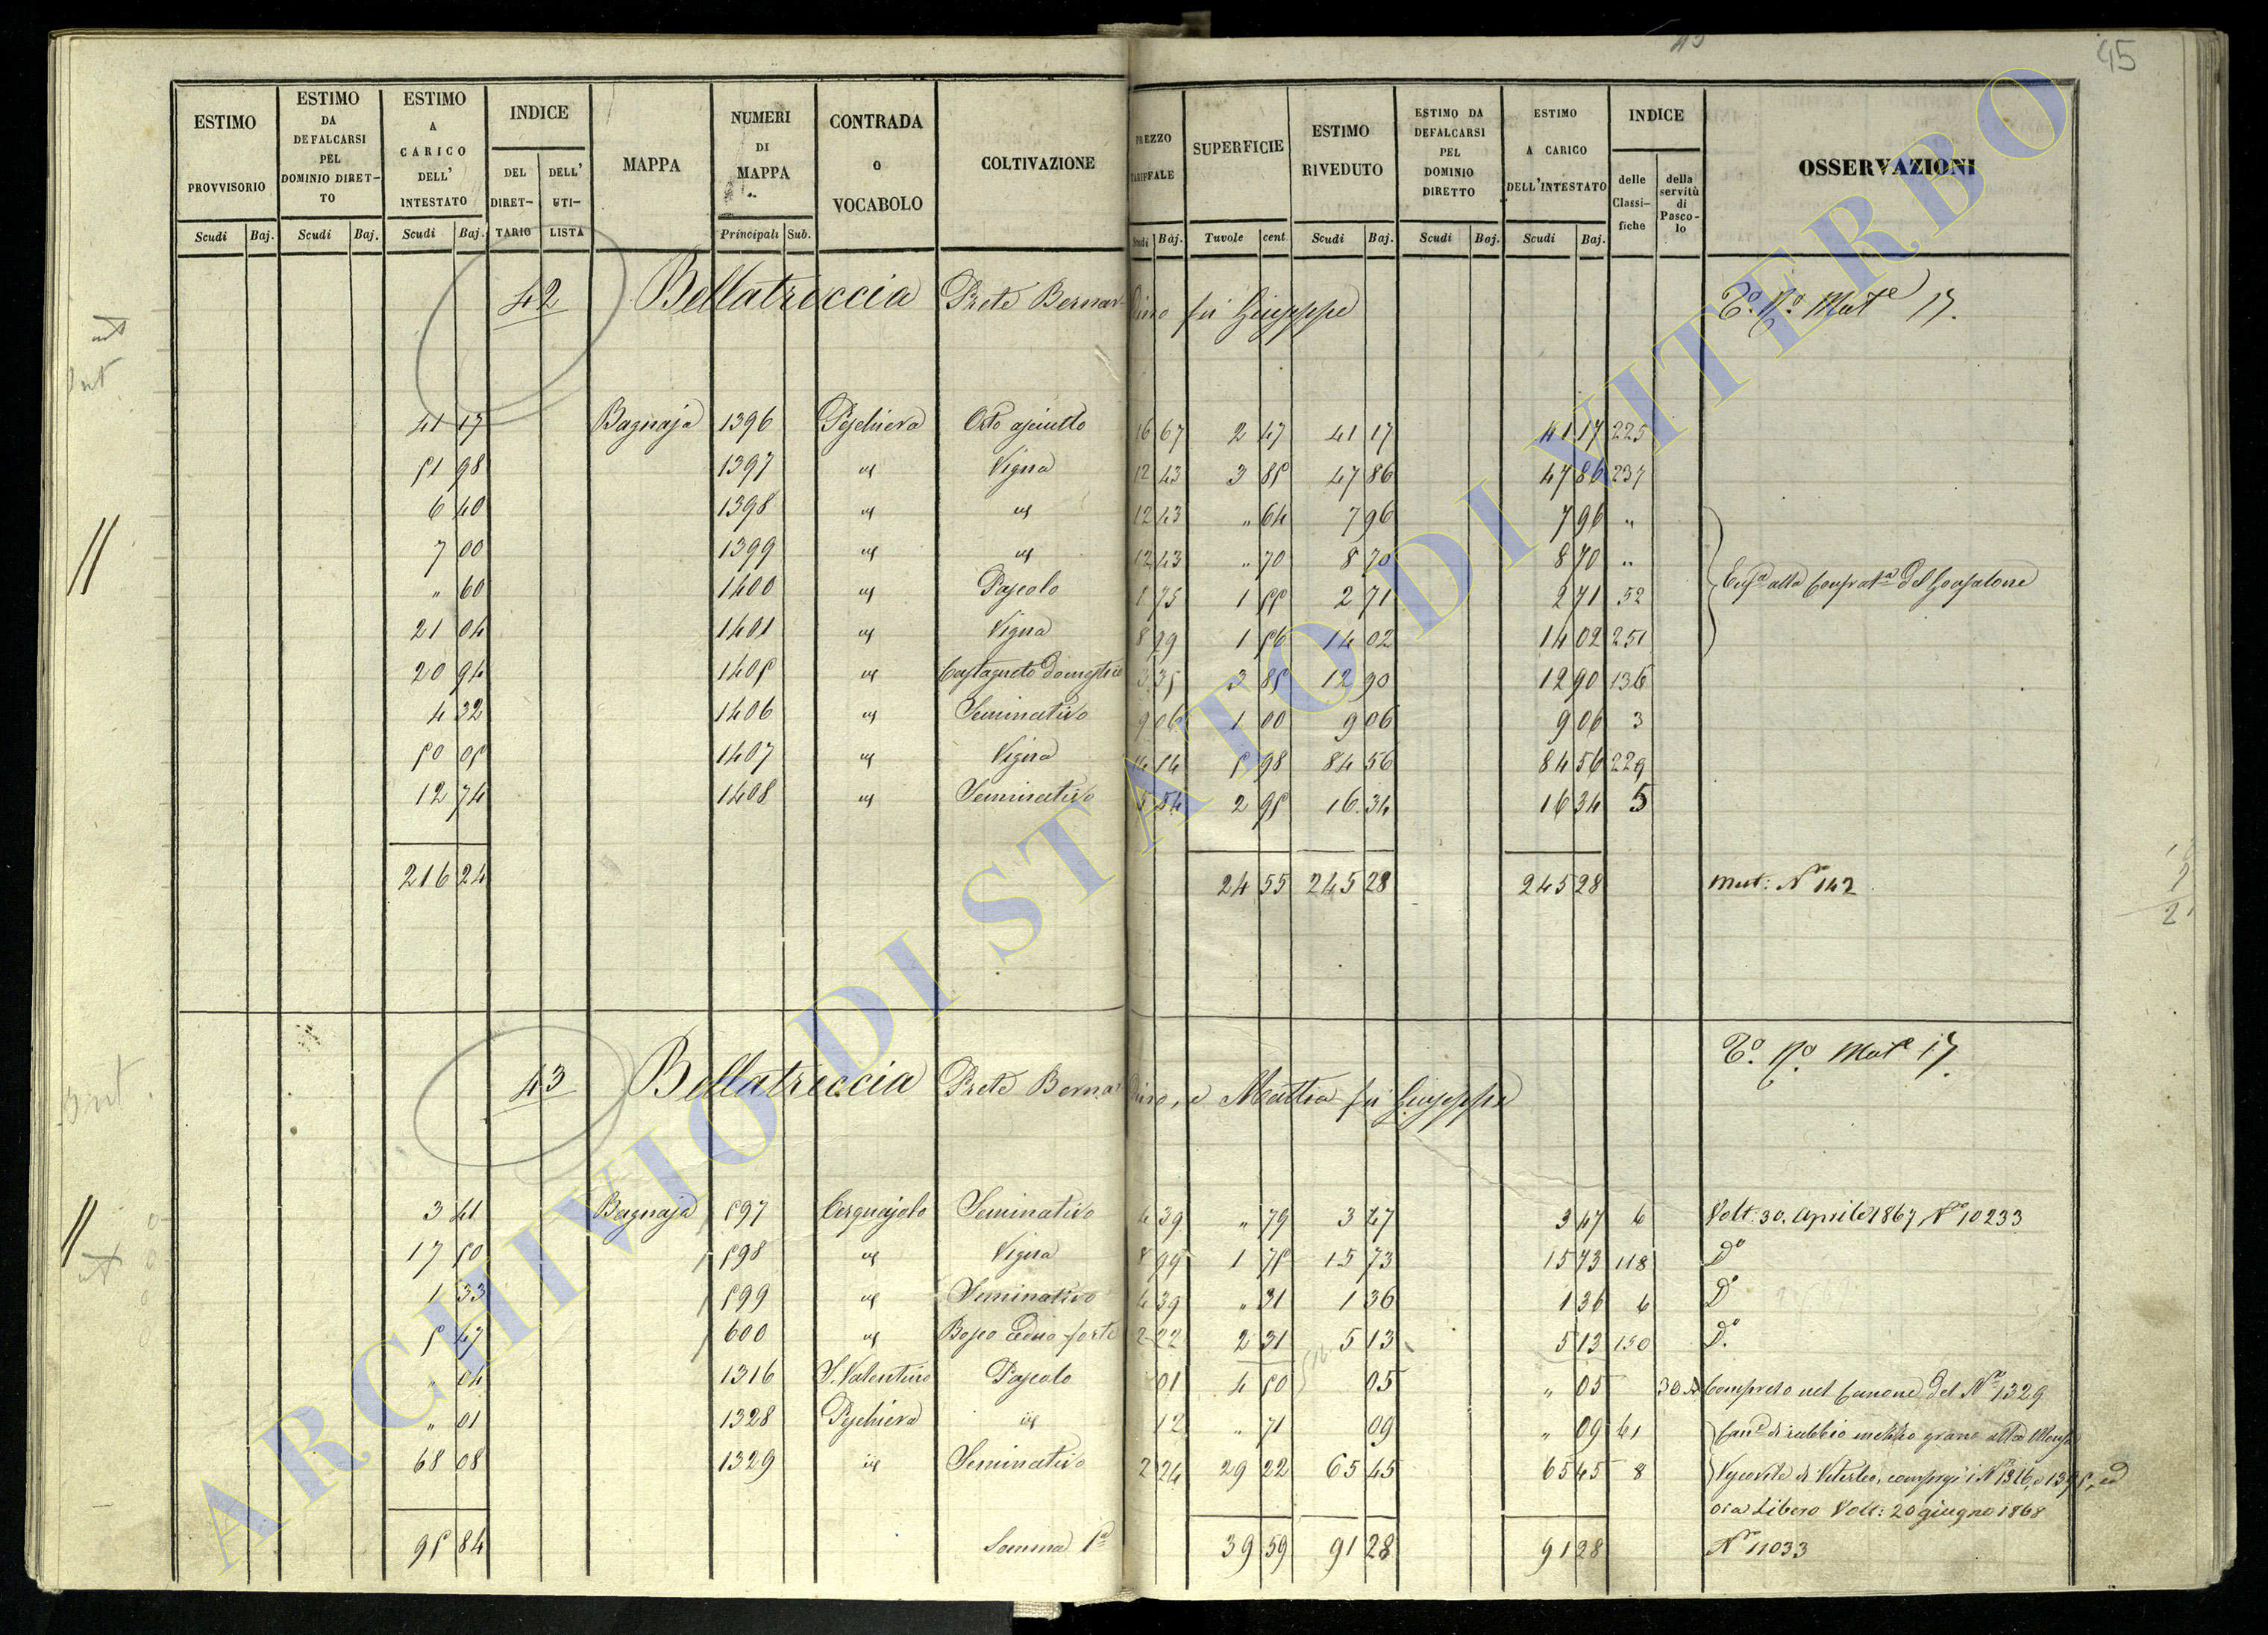 45
ESTIMO PROVVISORIO | ESTIMO DA DEFALCARSI PEL DOMINIO DIRET-TO | ESTIMO A CARICO DELL' INTESTATO | INDICE DEL DIRET-TARIO | DELL' UTI-LISTA | MAPPA | NUMERI DI MAPPA | CONTRADA O VOCABOLO | COLTIVAZIONE | PREZZO TARIFFALE | SUPERFICIE | ESTIMO RIVEDUTO | ESTIMO DA DEFALCARSI PEL DOMINIO DIRETTO | ESTIMO A CARICO DELL'INTESTATO | INDICE delle Classi-fiche | della servitù di Pasco-lo | OSSERVAZIONI
Scudi | Baj. | Scudi | Baj. | Scudi | Baj. | Principali | Sub. | Scudi | Baj. | Tavole | cent. | Scudi | Baj. | Scudi | Baj. | Scudi | Baj.
42 Bellatreccia Prete Bernardino fù Giuseppe Tº. Nº. Mate 17.
41 17 Bagnaja 1396 Peschiera Orto asciutto 16 67 2 47 41 17 41 17 225
51 98 1397 id Vigna 12 43 3 85 47 86 47 86 237
6 40 1398 id id 12 43 " 64 7 96 7 96 "
7 00 1399 id id 12 43 " 70 8 70 8 70 "
" 60 1400 id Pascolo 1 75 1 55 2 71 2 71 52 alla Confrata del Gonfalone
21 04 1401 id Vigna 8 99 1 56 14 02 14 02 251
20 94 1405 id Castagneto domestico 3 35 3 85 12 90 12 90 136
4 32 1406 id Seminativo 9 06 1 00 9 06 9 06 3
50 05 1407 id Vigna 14 14 5 98 84 56 84 56 229
12 74 1408 id Seminativo 5 54 2 95 16 34 16 34 5
216 24 24 55 245 28 245 28 mut: Nº 142
43 Bellatreccia Prete Bernardino, e Mattia fù Giuseppe Tº. Nº Mate 17.
3 41 Bagnaja 597 Cerquajolo Seminativo 4 39 " 79 3 47 3 47 6 Volt: 30. Aprile 1867 Nº 10233
17 50 598 id Vigna 8 99 1 75 15 73 15 73 118 Dº
1 33 599 id Seminativo 4 39 " 31 1 36 1 36 6 Dº
5 47 600 id Bosco ceduo forte 2 22 2 31 5 13 5 13 150 Dº
" 04 1316 S. Valentino Pascolo 01 4 50 05 " 05 30 A Compreso nel Canone del Nº 1329
" 01 1328 Peschiera id 12 " 71 09 " 09 41 Cane di rubbio grano alla Mensa
68 08 1329 id Seminativo 2 24 29 22 65 45 65 45 8 Vescovile di Viterbo, compresi i Nº 1316, e 1395, ed
ora Libero Volt: 20 giugno 1868
95 84 Somma 1ª 39 59 91 28 91 28 Nº 11033
ARCHIVIO DI STATO DI VITERBO